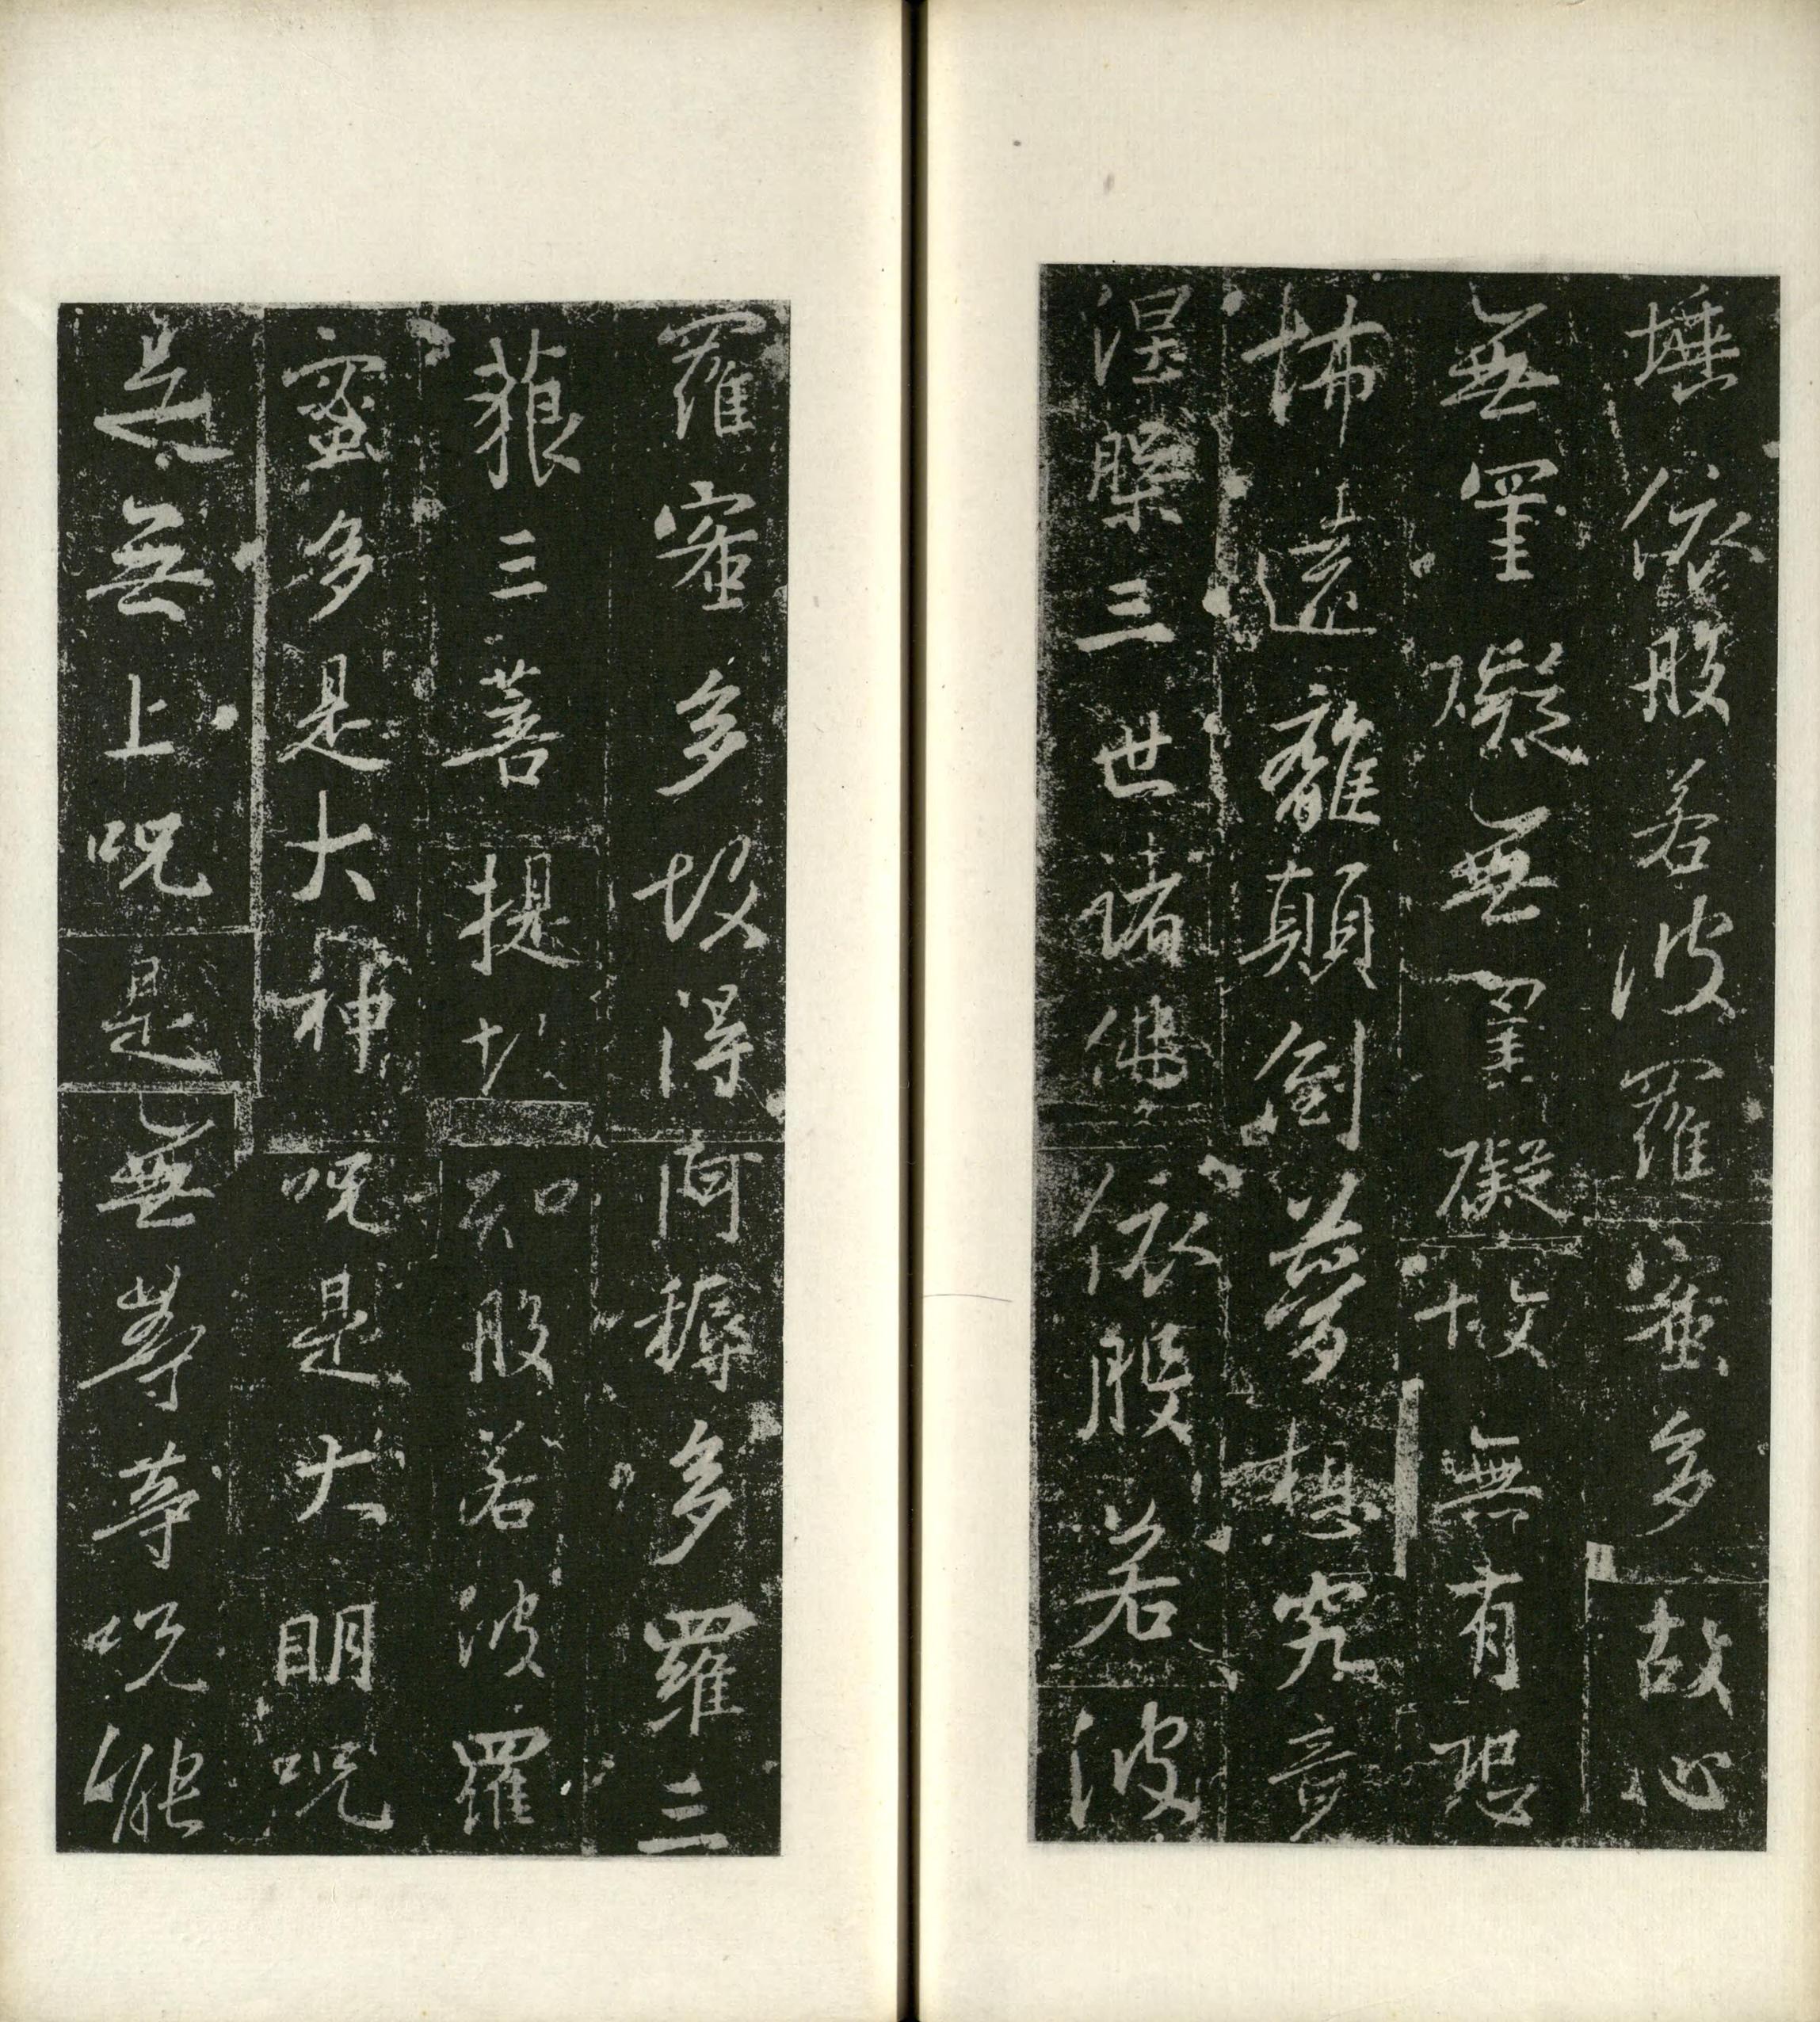 埵依般若波羅蜜多故心
無罣礙無罣礙故無有恐
怖遠離顛倒夢想究竟
涅槃三世諸佛依般若波
羅蜜多故得阿耨多羅三
藐三菩提故知般若波羅
蜜多是大神呪是大明呪
是無上呪是無等等呪能